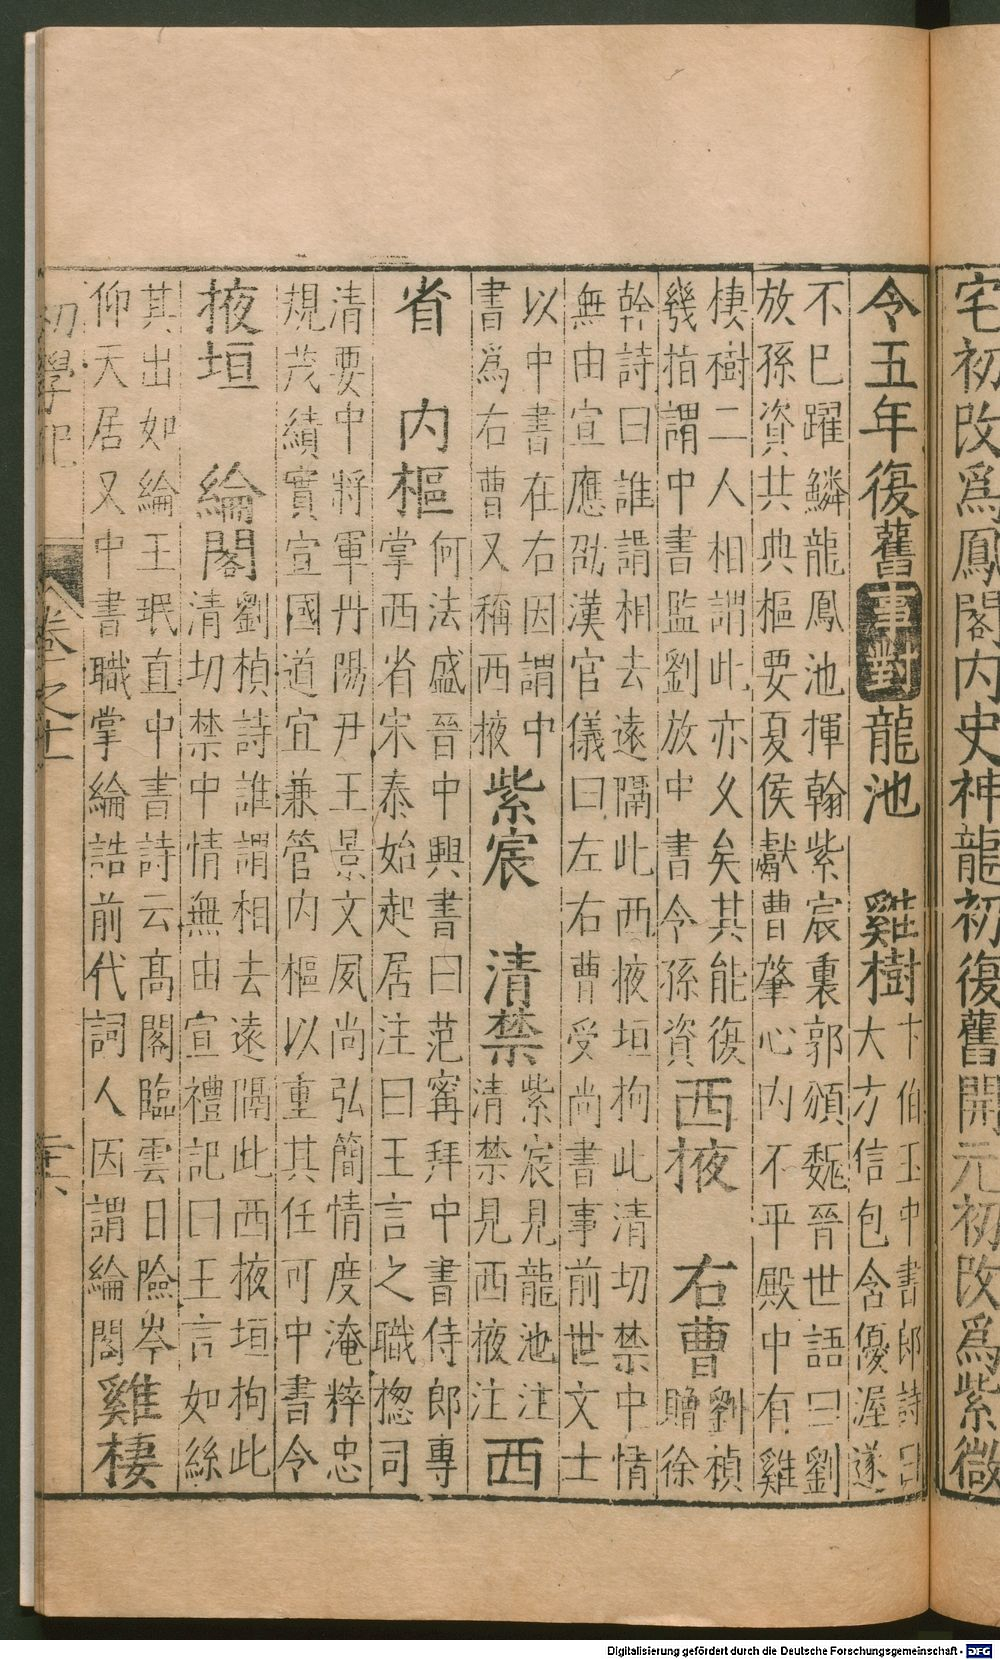 宅初改爲鳳閣内史神龍初復舊開元初改爲紫微
令五年復舊事對龍池　雞樹
卞伯玉中書郎詩曰
大方信包含優渥遂
不已躍鱗龍鳳池揮翰紫宸裏郭頒魏晉世語曰劉
放孫資共典樞要夏侯獻曹肇心内不平殿中有雞
棲樹二人相謂此亦久矣其能復
幾指謂中書監劉放中書令孫資
西掖　右曹
劉楨
贈徐
幹詩曰誰謂相去遠隔此西掖垣拘此清切禁中情
無由宣應劭漢官儀曰左右曹受尚書事前世文士
以中書在右因謂中
書爲右曹又稱西掖
紫宸　清禁
紫宸見龍池注
清禁見西掖注
西
省　内樞
何法盛晉中興書曰范寗拜中書侍郎專
掌西省宋泰始起居注曰王言之職揔司
清要中將軍丹陽尹王景文夙尚弘簡情度淹粹忠
規茂績實宣國道宜兼管内樞以重其任可中書令
掖垣　綸閣
劉楨詩誰謂相去遠隔此西掖垣拘此
清切禁中情無由宣禮記曰王言如絲
其出如綸王珉直中書詩云高閣臨雲日險岑
仰天居又中書職掌綸誥前代詞人因謂綸閣
雞棲
初學記　卷之十一　二十六
Digitalisierung gefördert durch die Deutsche Forschungsgemeinschaft - DFG